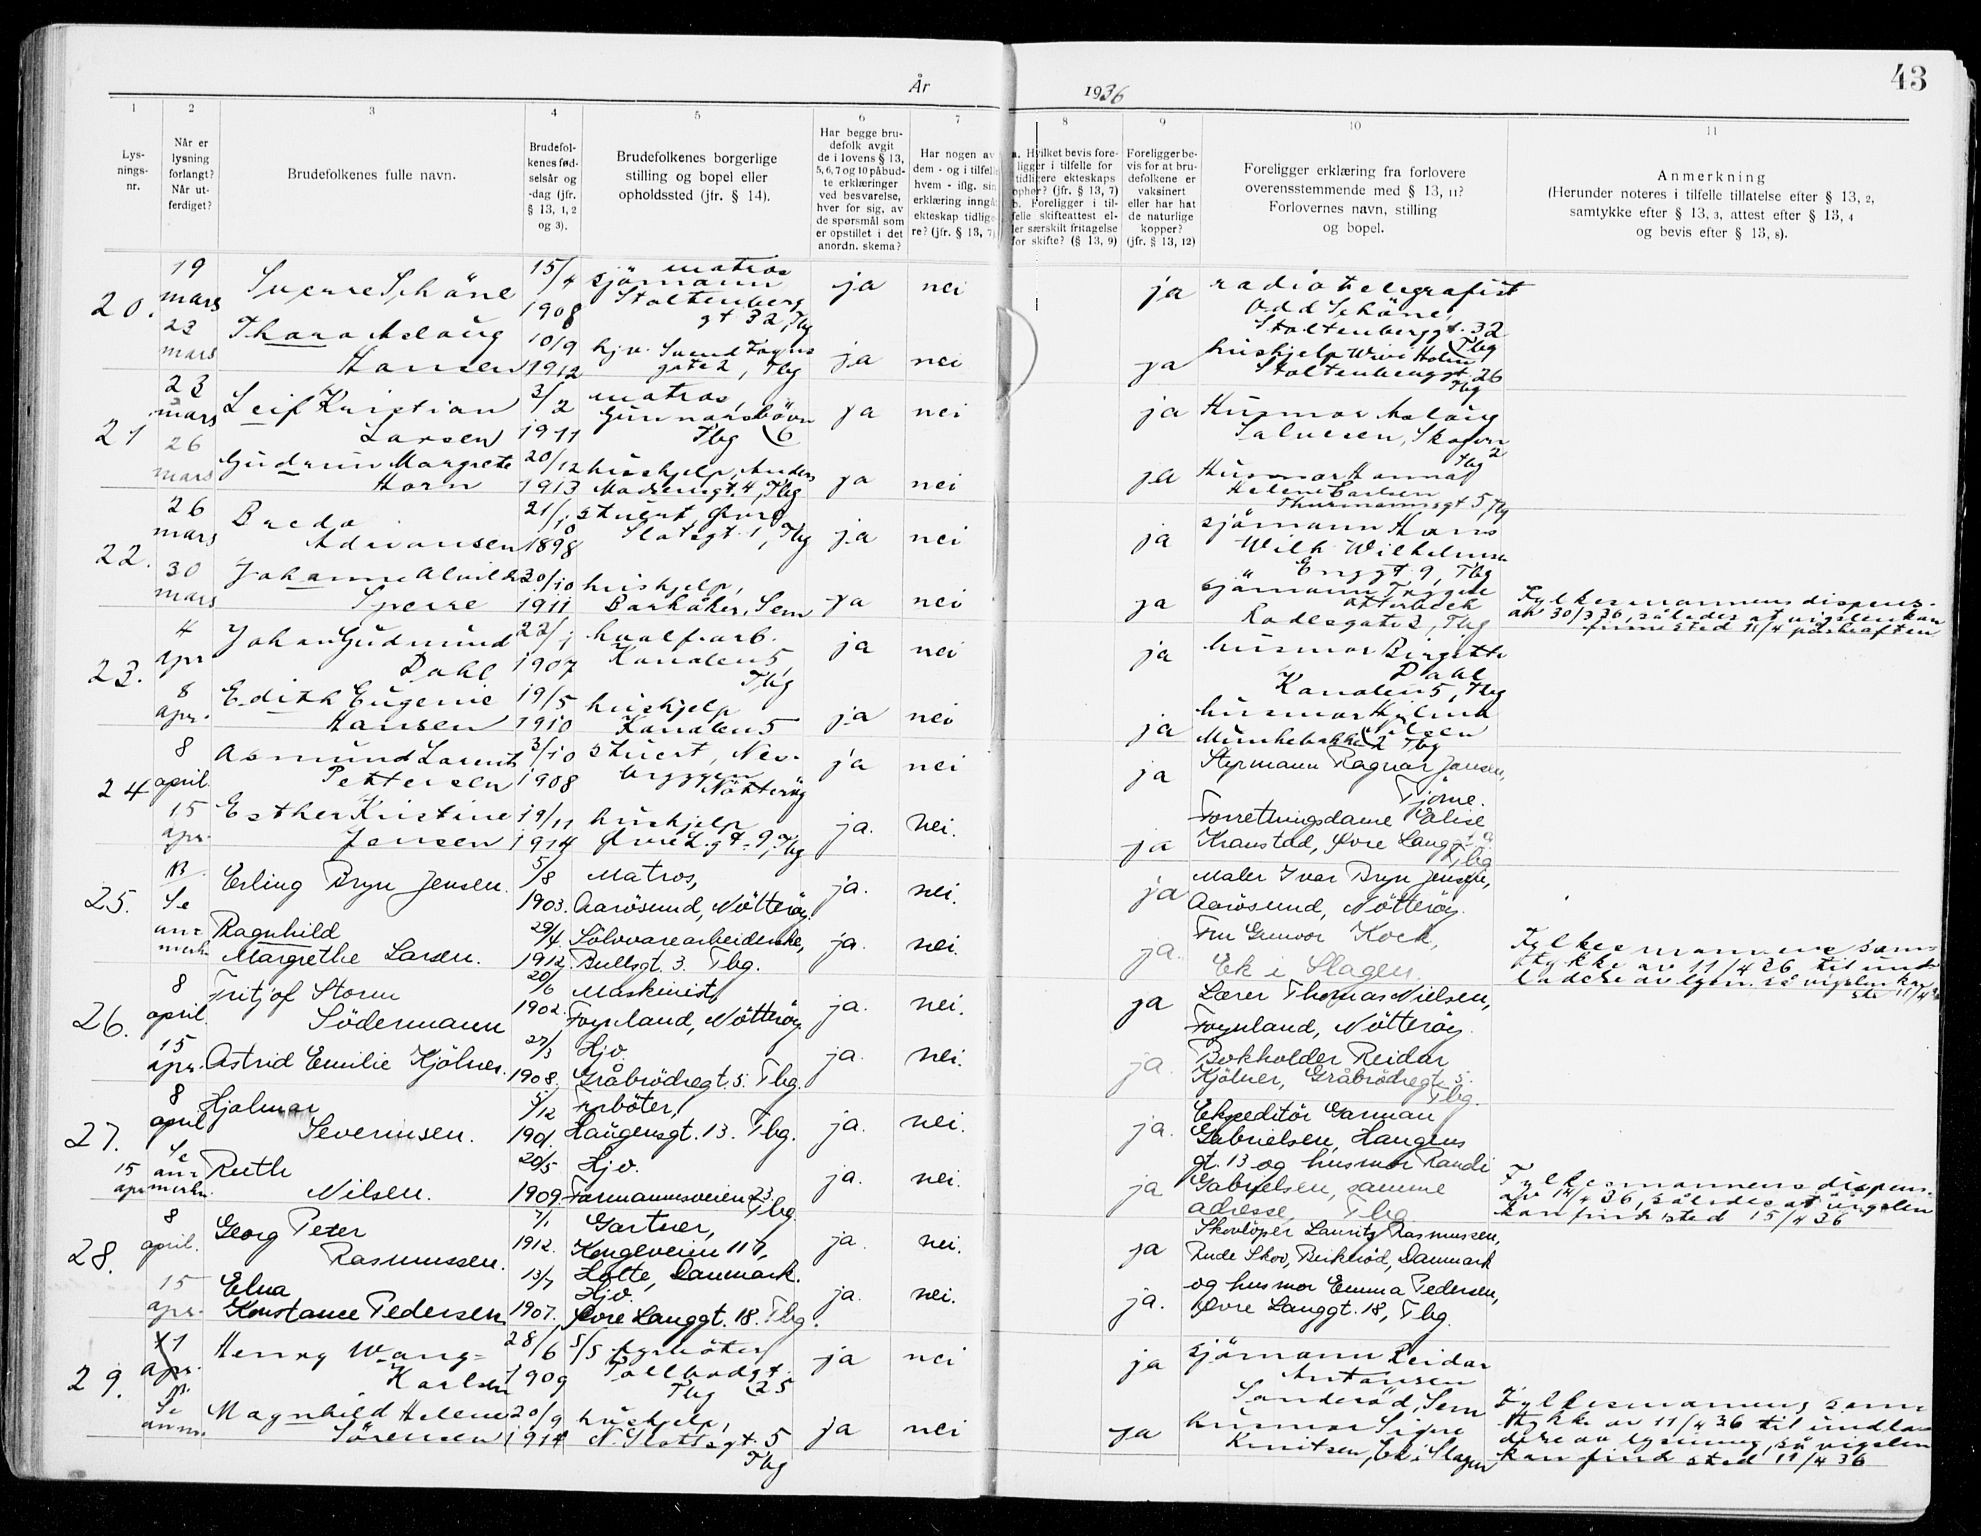 43
År 1936
1 2 3 4 5 6 7 8 9 10 11
Lys-
nings-
nr.
Når er
lysning
forlangt?
Når ut-
ferdiget?
Brudefolkenes fulle navn.
Brudefol-
kenes fød-
selsår og
-dag (jfr.
§ 13, 1, 2
og 3).
Brudefolkenes borgerlige
stilling og bopel eller
opholdssted (jfr. § 14).
Har begge bru-
defolk avgit
de i lovens § 13,
5, 6, 7 og 10 påbud-
te erklæringer
ved besvarelse,
hver for sig, av
de spørsmål som
er opstillet i det
anordn. skema?
Har nogen av
dem - og i tilfelle
hvem - iflg. sin
erklæring inngåt
ekteskap tidlige-
re? (jfr. § 13, 7)
a. Hvilket bevis fore-
ligger i tilfelle for
tidligere ekteskaps
ophør? (jfr. § 13, 7)
b. Foreligger i til-
felle skifteattest el-
ler særskilt fritagelse
for skifte? (§ 13, 9)
Foreligger be-
vis for at bru-
defolkene er
vaksinert
eller har hat
de naturlige
kopper?
(jfr. § 13, 12)
Foreligger erklæring fra forlovere
overensstemmende med § 13, 11?
Forlovernes navn, stilling
og bopel.
Anmerkning
(Herunder noteres i tilfelle tillatelse efter § 13, 2,
samtykke efter § 13, 3, attest efter § 13, 4
og bevis efter § 13, 8).
20.
19
mars
Sverre Schöne
15/4
1908
matros
sjömann
Stoltenberg
gt 32, Tbg
ja nei ja
radiotelegrafist
Odd Schöne,
Stoltenberggt. 32
Tbg
23
mars
Thora Aslaug
Hansen
10/9
1912
hjv. Svend Foyns
gate 2, Tbg
ja nei ja
hushjelp Wivi Holm
Stoltenberggt 26
Tbg
21
23
mars
Leif Kristian
Larsen
3/2
1911
matros,
Gunnarsbövn
Tbg 6
ja nei ja
Husmor Aslaug
Salvesen,
Tbg 2
26
mars
Gudrun Margrete
Horn
20/12
1913
hushjelp, Anders
Madsensgt. 4, Tbg
ja nei ja
Husmor Hanna
Helene Carlsen
Thurmannsgt 5, Tbg
22.
26
mars
Bredo
Adriansen
21/10
1898
stuert Øvre
Slotsgt. 1, Tbg
ja nei ja
sjömann Hans
Wilh. Wilhelmsen
Enggt 9, Tbg
30
mars
Johanne Alvilde
Sperre
30/10
1911
hushjelp,
Barkåker, Sem
ja nei ja
sjömann Trygve
Otterbeck
Rodesgate 2, Tbg
Fylkesmannens dispens.
av 30/3 36, således at vigslen kan
finne sted 11/4 påskeaften
23.
4
apr
Johan Gudmund
Dahl
22/1
1907
hvalf.arb.
Kanalen 5,
Tbg
ja nei ja
husmor Birgitte
Dahl
Kanalen 5, Tbg
8
apr.
Edith Eugenie
Hansen
19/5
1910
hushjelp
Kanalen 5
ja nei ja
husmor
Munkebakken 2 Tbg
24
8
april.
Asmund Lorentz
Pettersen
3/10
1908
stuert, Nes-
bryggen
Nötteröy
ja nei ja
Styrmann Ragnar Jensen,
Tjöme.
15
apr.
Esther Kristine
Jensen
19/11
1914
hushjelp
Øvre L.gt. 9, Tbg
ja. nei. ja
Forretningsdame Elise
Kranstad, Øvre Langgt. 9
Tbg
25.
11.
Se
an=
merk.
Erling Bryn Jensen.
5/8
1903.
Matros,
Aarösund, Nötteröy.
ja. nei. ja
Maler Ivar Bryn Jensen,
Aarösund, Nötteröy.
Ragnhild
Margrethe Larsen.
29/4
1912.
Sölvvarearbeiderske,
Bullsgt. 3. Tbg.
ja. nei. ja.
Fru Gunvor Kock,
Ek i Slagen.
Fylkesmannens sam-
tykke av 11/4 36 til und-
ladelse av lysn. så vigslen kan
26.
8
april.
Fritjof Storm
Södermann
20/6
1902.
Maskinist,
Foynland, Nötteröy
ja. nei. ja
Lærer Thomas Nielsen,
Foynland, Nötteröy.
15
apr.
Astrid Emilie Kjölner.
27/3
1908.
Hjv.
Gråbrödregt. 5. Tbg.
ja. nei. ja.
Bokholder Reidar
Kjölner, Gråbrödregt. 5.
Tbg.
27.
8
april
Hjalmar
Severinsen.
5/12
1901.
Fyrböter,
Haugensgt. 13. Tbg.
ja. nei. ja.
Ekspeditör Garman
Gabrielsen, Haugens
gt. 13 og husmor Randi
Gabrielsen, samme
adresse Tbg
15
apr
Se
an=
merkn.
Ruth
Nilsen.
20/5
1909.
Hjv.
Farmannsveien 23.
Tbg.
ja. nei. ja
Fylkesmannens dispens.
av 14/4 36, således at vigslen
kan finde sted 15/4 36
28.
8
april.
Georg Peter
Rasmussen.
7/1
1912.
Gartner,
Kongeveien 117,
Holte, Danmark.
ja. nei. ja
Skovlöper Lauritz Rasmussen,
Rude Skov, Birkeröd, Danmark
15
apr.
Elna
Konstance Pedersen
13/7
1907.
Hjv.
Øvre Langgt. 18. Tbg.
ja. nei. ja.
og husmor Emma Pedersen,
Øvre Langgt. 18, Tbg.
29.
11
apr.
Henry Wang-
Karlsen
28/6
1909
fyrböter
Tollbodgt.
Tbg 25
ja nei ja
sjömann Reidar
Antonsen
Sanderöd, Sem
Se
anm.
Magnhild Helene
Sörensen
20/9
1914
hushjelp,
N. Slottsgt. 5
Tbg
ja nei ja
husmor Signe
Knutsen, Ek i Slagen
Fylkesmannens sam-
tykke av 11/4 36 til undla-
delse av lysning, så vigslen
kan finde sted 11/4 36